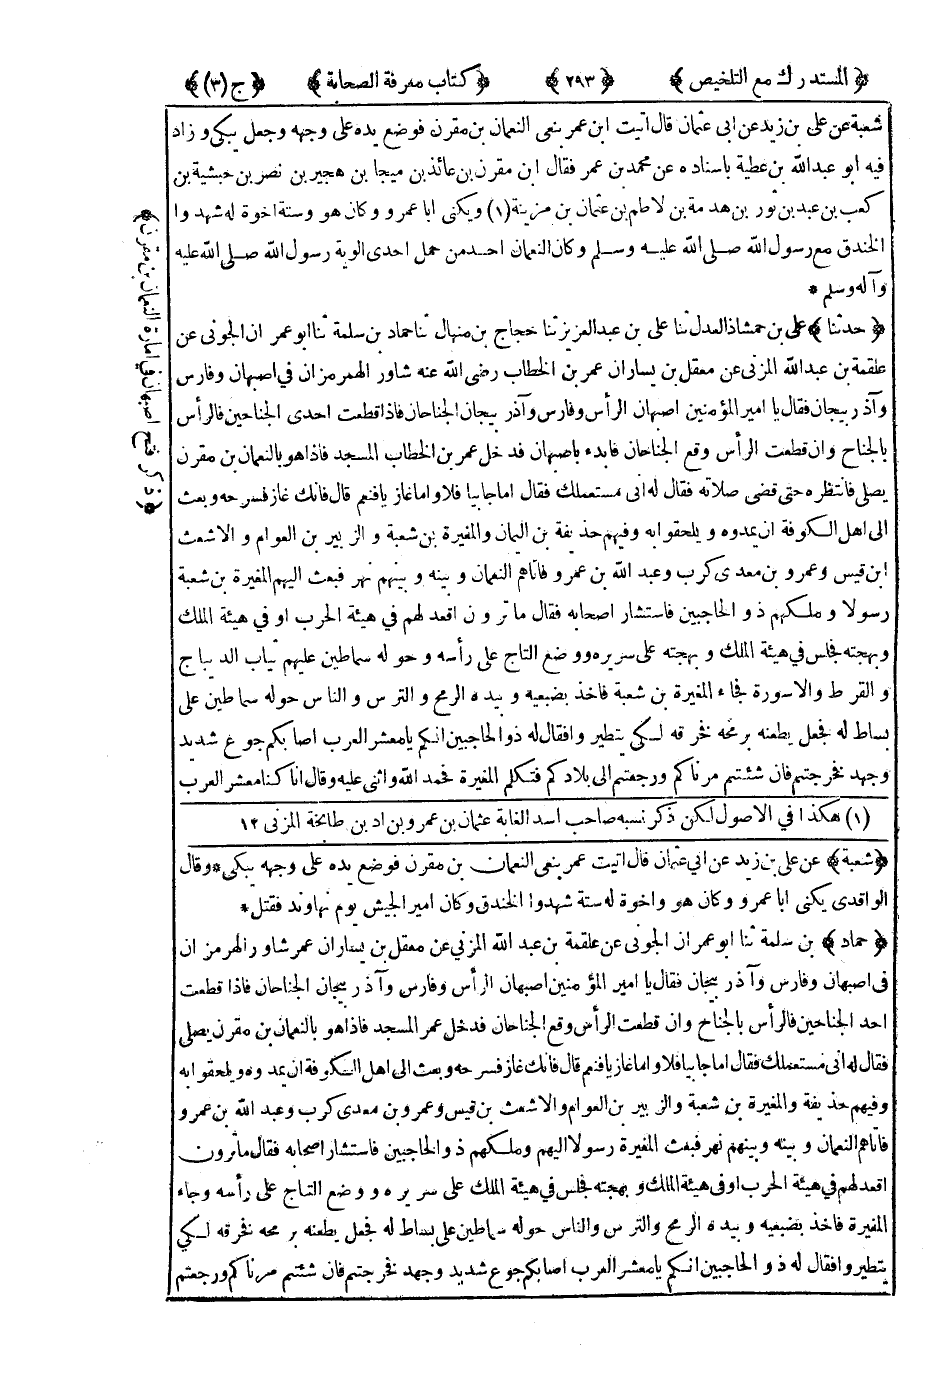 ﴿ المستدرك مع التلخيص ﴾ ﴿ ٢٩٣ ﴾ ﴿ كتاب معرفة الصحابة ﴾ ﴿ ج (٣) ﴾
شعبة عن على بن زيد عن ابى عثمان قال اتيت ابن عمر بنعى النعمان بن مقرن فوضع يده على وجهه وجعل يبكى و زاد
فيه ابو عبد الله بن عطية باسناده عن محمد بن عمر فقال ابن مقرن بن عائذ بن ميجا بن هجير بن نصر بن حبشية بن
كعب بن عبد بن ثور بن هدمة بن لاطم بن عثمان بن مزينة (١) ويكنى ابا عمرو وكان هو وستة اخوة له شهدوا
الخندق مع رسول الله صلى الله عليه وسلم وكان النعمان احد من حمل احدى الوية رسول الله صلى الله عليه
وآله وسلم *
﴿ حدثنا ﴾ على بن حمشاذ العدل ثنا على بن عبد العزيز ثنا حجاج بن منهال ثنا حماد بن سلمة ثنا ابو عمران الجونى عن
علقمة بن عبد الله المزنى عن معقل بن يسار ان عمر بن الخطاب رضى الله عنه شاور الهرمزان في اصبهان وفارس
وآذربيجان فقال يا امير المؤمنين اصبهان الرأس وفارس وآذربيجان الجناحان فاذا قطعت احدى الجناحين فالرأس
بالجناح وان قطعت الرأس وقع الجناحان فابدء باصبهان فدخل عمر بن الخطاب المسجد فاذا هو بالنعمان بن مقرن
يصلى فانتظره حتى قضى صلاته فقال له انى مستعملك فقال اما جابيا فلا واما غازيا فنعم قال فانك غاز فسرحه وبعث
الى اهل الكوفة ان يمدوه و يلحقوا به وفيهم حذيفة بن اليمان والمغيرة بن شعبة و الزبير بن العوام و الاشعث
ابن قيس وعمرو بن معدى كرب وعبد الله بن عمرو فاتاهم النعمان و بينه و بينهم نهر فبعث اليهم المغيرة بن شعبة
رسولا و ملكهم ذو الحاجبين فاستشار اصحابه فقال ما ترون اقعد لهم في هيئة الحرب او في هيئة الملك
وبهجته فجلس في هيئة الملك و بهجته على سريره ووضع التاج على رأسه و حوله سماطين عليهم ثياب الديباج
و القرط والاسورة فجاء المغيرة بن شعبة فاخذ بضبعيه و بيده الرمح و الترس و الناس حوله سماطين على
بساط له فجعل يطعنه برمحه فخرقه لكى يتطيروا فقال له ذو الحاجبين انكم يا معشر العرب اصابكم جوع شديد
وجهد فخرجتم فان شئتم مرناكم ورجعتم الى بلادكم فتكلم المغيرة فحمد الله واثنى عليه وقال انا كنا معشر العرب
(١) هكذا في الاصول لكن ذكر نسبه صاحب اسد الغابة عثمان بن عمرو بن اد بن طابخة المزنى ١٢
﴿شعبة﴾ عن على بن زيد عن ابى عثمان قال اتيت عمر بنعى النعمان بن مقرن فوضع يده على وجهه يبكى * وقال
الواقدى يكنى ابا عمرو وكان هو واخوة له ستة شهدوا الخندق وكان امير الجيش يوم نهاوند فقتل *
﴿ حماد ﴾ بن سلمة ثنا ابو عمران الجونى عن علقمة بن عبد الله المزنى عن معقل بن يسار ان عمر شاور الهرمزان
فى اصبهان وفارس وآذربيجان فقال يا امير المؤمنين اصبهان الرأس وفارس وآذربيجان الجناحان فاذا قطعت
احد الجناحين فالرأس بالجناح وان قطعت الرأس وقع الجناحان فدخل عمر المسجد فاذا هو بالنعمان بن مقرن يصلى
فقال له انى مستعملك فقال اما جابيا فلا واما غازيا فنعم قال فانك غاز فسرحه وبعث الى اهل الكوفة ان يمدوه ويلحقوا به
وفيهم حذيفة والمغيرة بن شعبة والزبير بن العوام والاشعث بن قيس وعمرو بن معدى كرب وعبد الله بن عمرو
فاتاهم النعمان و بينه وبينهم نهر فبعث المغيرة رسولا اليهم وملكهم ذو الحاجبين فاستشار اصحابه فقال ما ترون
اقعد لهم في هيئة الحرب او فى هيئة الملك و بهجته فجلس في هيئة الملك على سريره ووضع التاج على رأسه وجاء
المغيرة فاخذ بضبعيه و بيده الرمح والترس والناس حوله سماطين على بساط له فجعل يطعنه برمحه فخرقه لكى
يتطيروا فقال له ذو الحاجبين انكم يا معشر العرب اصابكم جوع شديد وجهد فخرجتم فان شئتم مرناكم ورجعتم
﴿ذكر فتح اصبهان في امارة النعمان بن مقرن﴾